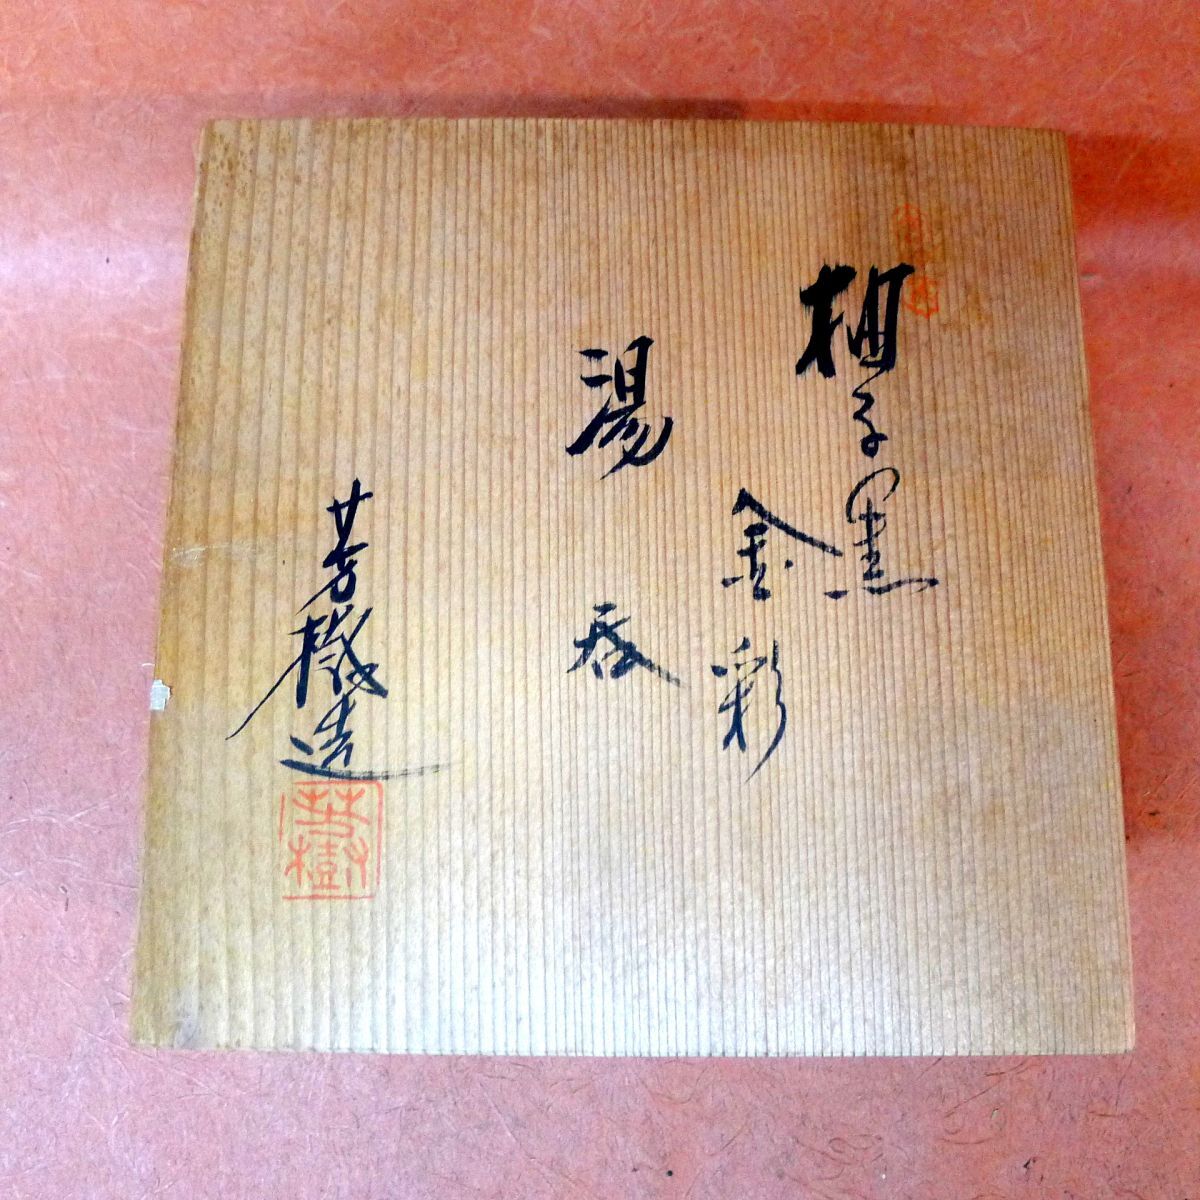 柚子黒
金彩
湯呑
芳樹造
芳樹